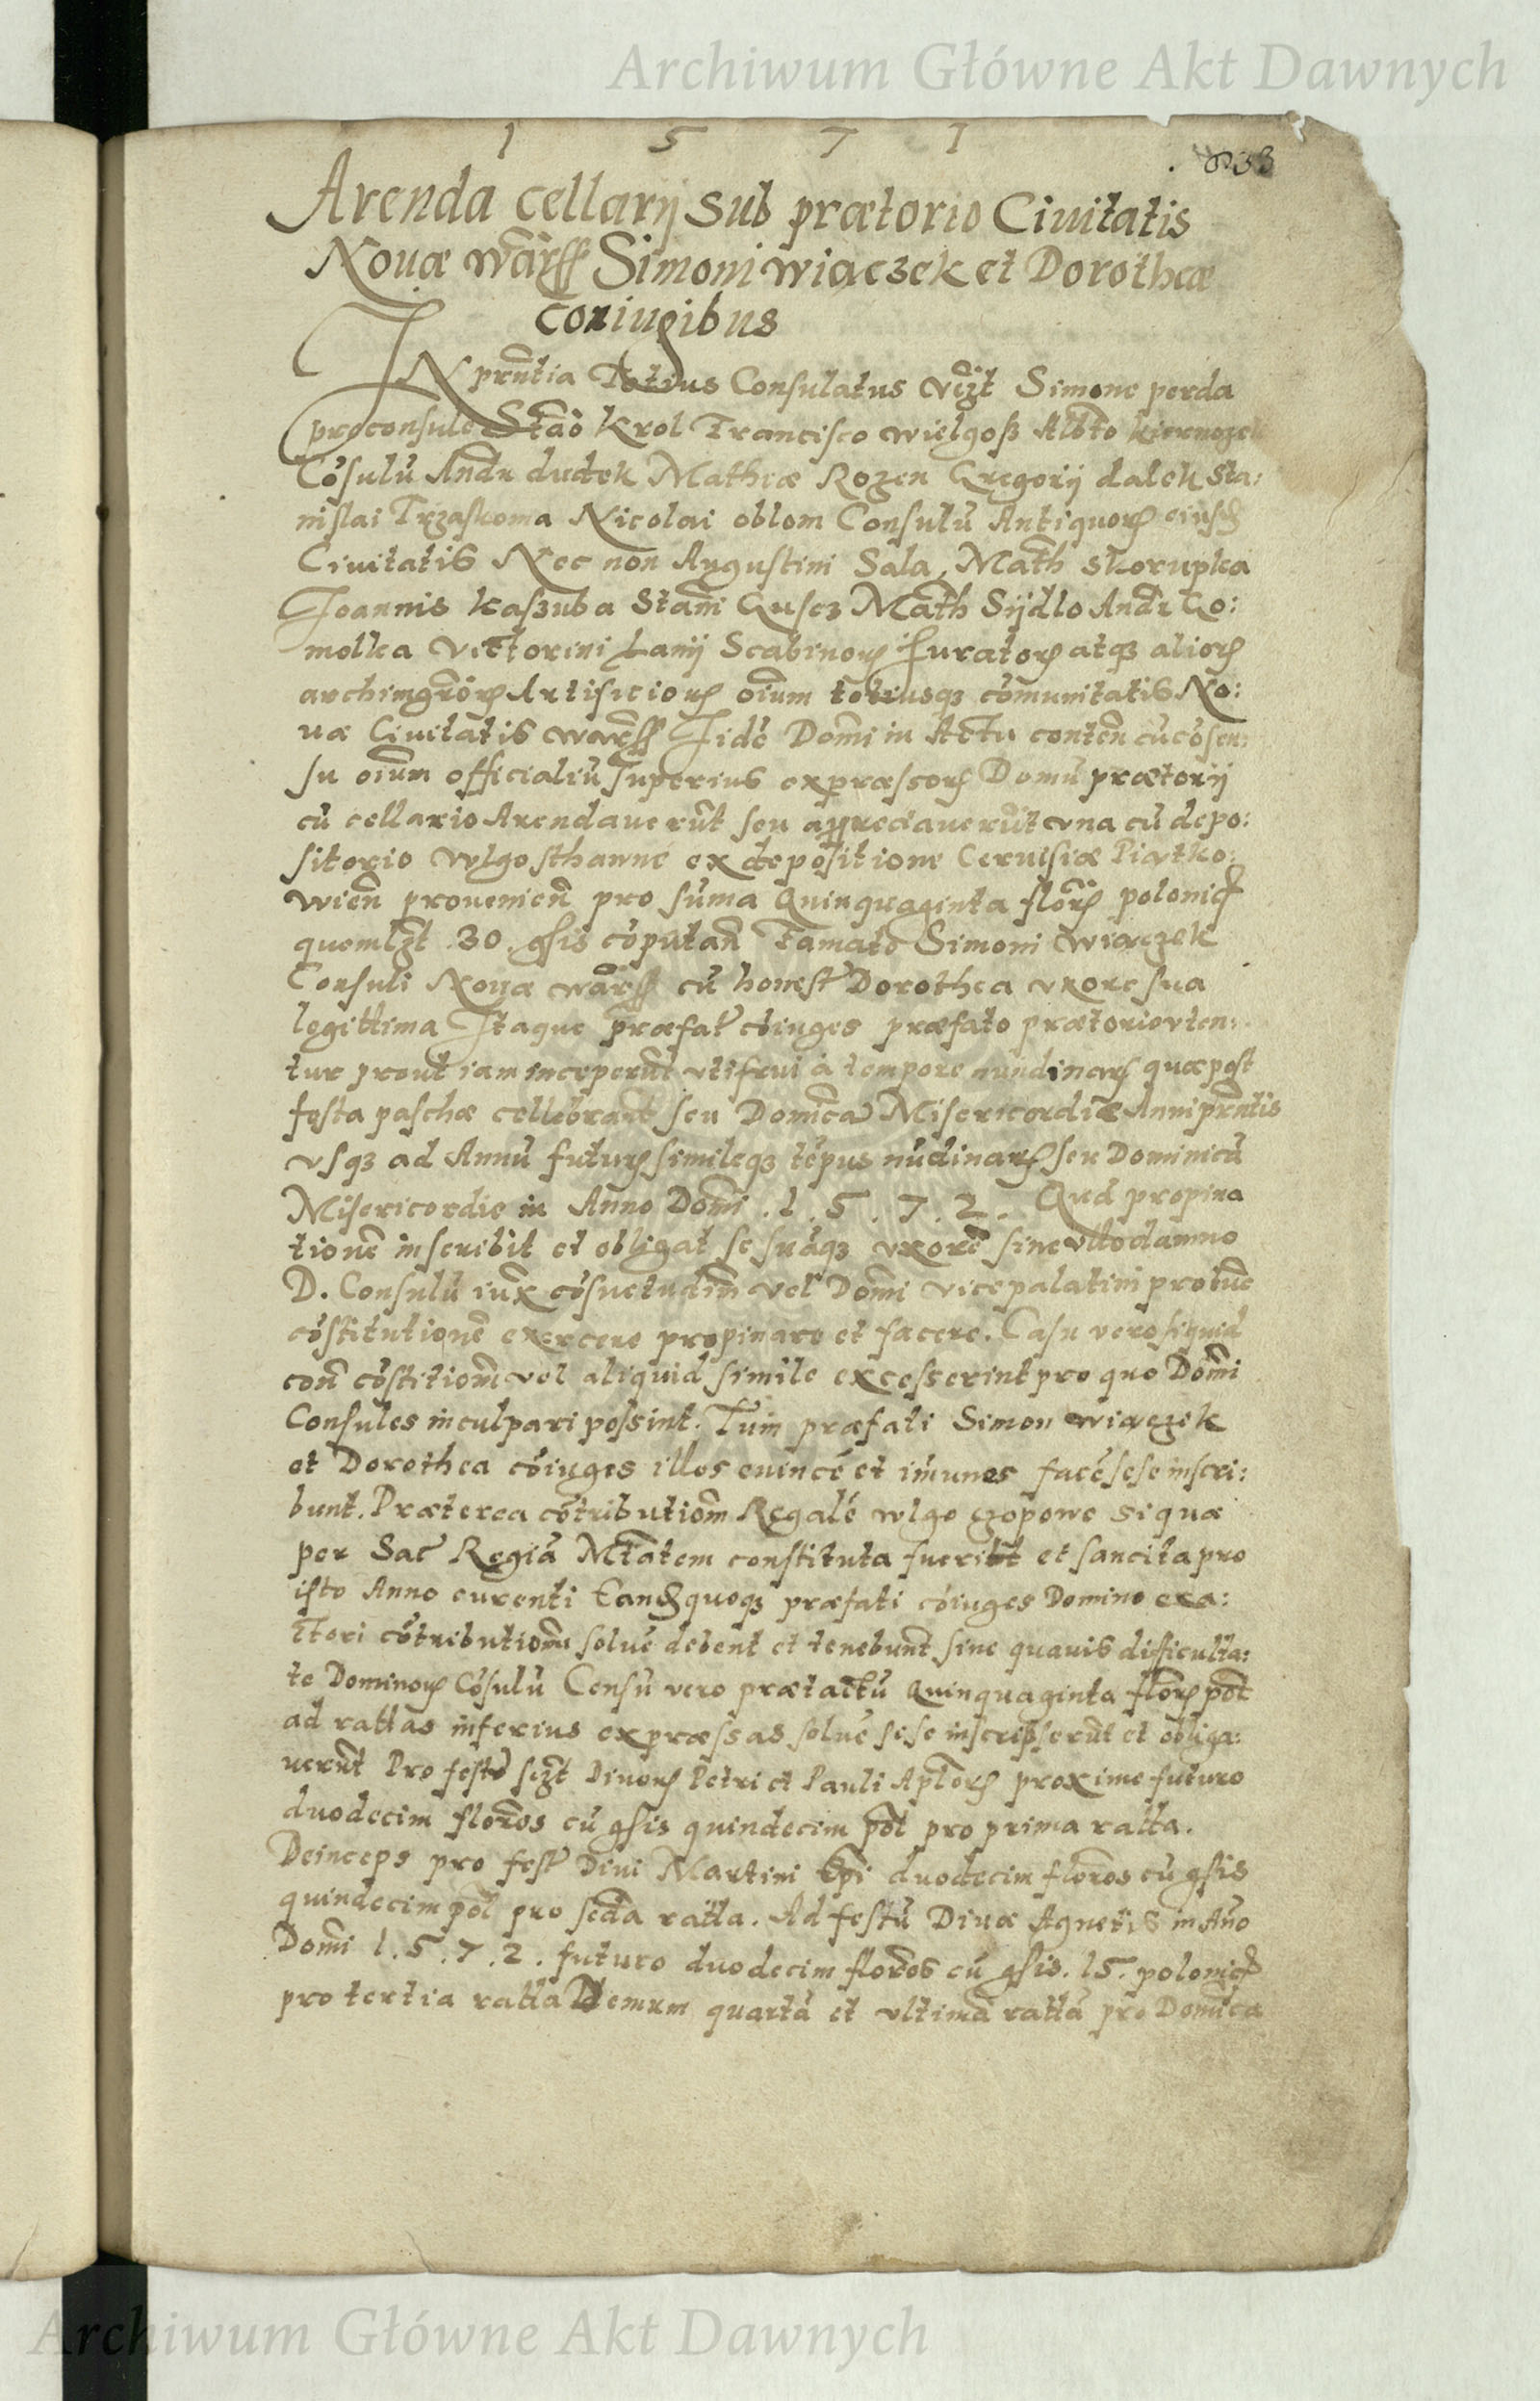 Archiwum Główne Akt Dawnych
1 5 7 1
Arenda cellarij sub prætorio Ciuitatis
Nouæ warss Simoni wiaczek et Dorotheæ
Coniugibus
IN prntia Totius Consulatus vizt Simone perda
proconsule Stao Krol Francisco wielgoß Albto kiernozek
Cōsulū Andr dudek Mathiæ Rozen Gregorij dalek Sta:
nislai Trzaskoma Nicolai oblom Consulū Antiquor eiusd
Ciuitatis Nec non Augustini Sala, Math skorupka
Joannis kaszuba Stani Guscz Math Sijdlo Andr Go:
molka victorini Lanij Scabinor Jurator atq alior
archimgror Artificior oium totiusq cōmunitatis No:
uæ Ciuitatis warss Jidē Domi in Actu conten cū cōsen:
su oium officialiū superius expræssor Domū prætorij
cū cellario Arendauerūt seu appreciauerūt vna cū depo:
sitorio vulgo sthawne ex depositione Ceruisiæ Piątko:
wien prouenien pro sūma Quinquaginta flor polonic
quemlzt 30 gsis cōputan Famato Simoni wiaczek
Consuli Nouæ warss cū honest Dorothea vxore sua
legittima Itaque præfat cōiuges præfato prætorio vten:
tur prout iam inceperūt vtifrui à tempore nundinar quæ post
festa paschæ cellebrant seu Domīca Misericordiæ Anni prntis
vsq ad Annū futur simileq tēpus nūdinar seu Dominicū
Misericordie in Anno Domi . 1 . 5 . 7 . 2 . Qud propina
tionē inscribit et obligat se suāq vxorē sine vllo damno
D. Consulū iux cōsuetudin vel Domi vicepalatini pro tūc
cōstitutionē exercere propinare et facere. Casu vero siquid
con cōstitiom vel aliquid simile excesserint pro quo Domi
Consules inculpari possint. Tum præfati Simon wiaczek
et Dorothea cōiuges illos euincē et imunes facē sese inscri:
bunt. Præterea cōtributiom Regalē wlgo czopowe si quæ
per Sac Regiā Mtatem constituta fuerit et sancita pro
isto Anno curenti Eand quoq præfati cōiuges Domino exa:
ctori cōtributiom soluē debent et tenebunt sine quauis difficulta:
te Dominor Cōsulū Censū vero prætactū Quinquaginta flor pol
ad rattas inferius expræssas soluē sese inscripserūt et obliga:
uerūt Pro festo sczt Diuor Petri et Pauli Aplor proxime futuro
duodecim flores cū gsis quindecim pol pro prima ratta.
Deinceps pro fest Diui Martini Epi duodecim flores cū gsis
quindecim pol pro scda ratta. Ad festū Diuæ Agnetis in Ano
Domi 1 . 5 . 7 . 2 . futuro duodecim flores cū gsis . 15 . polonic
pro tertia ratta Demum quartā et vltimā rattā pro Domīca
Archiwum Główne Akt Dawnych